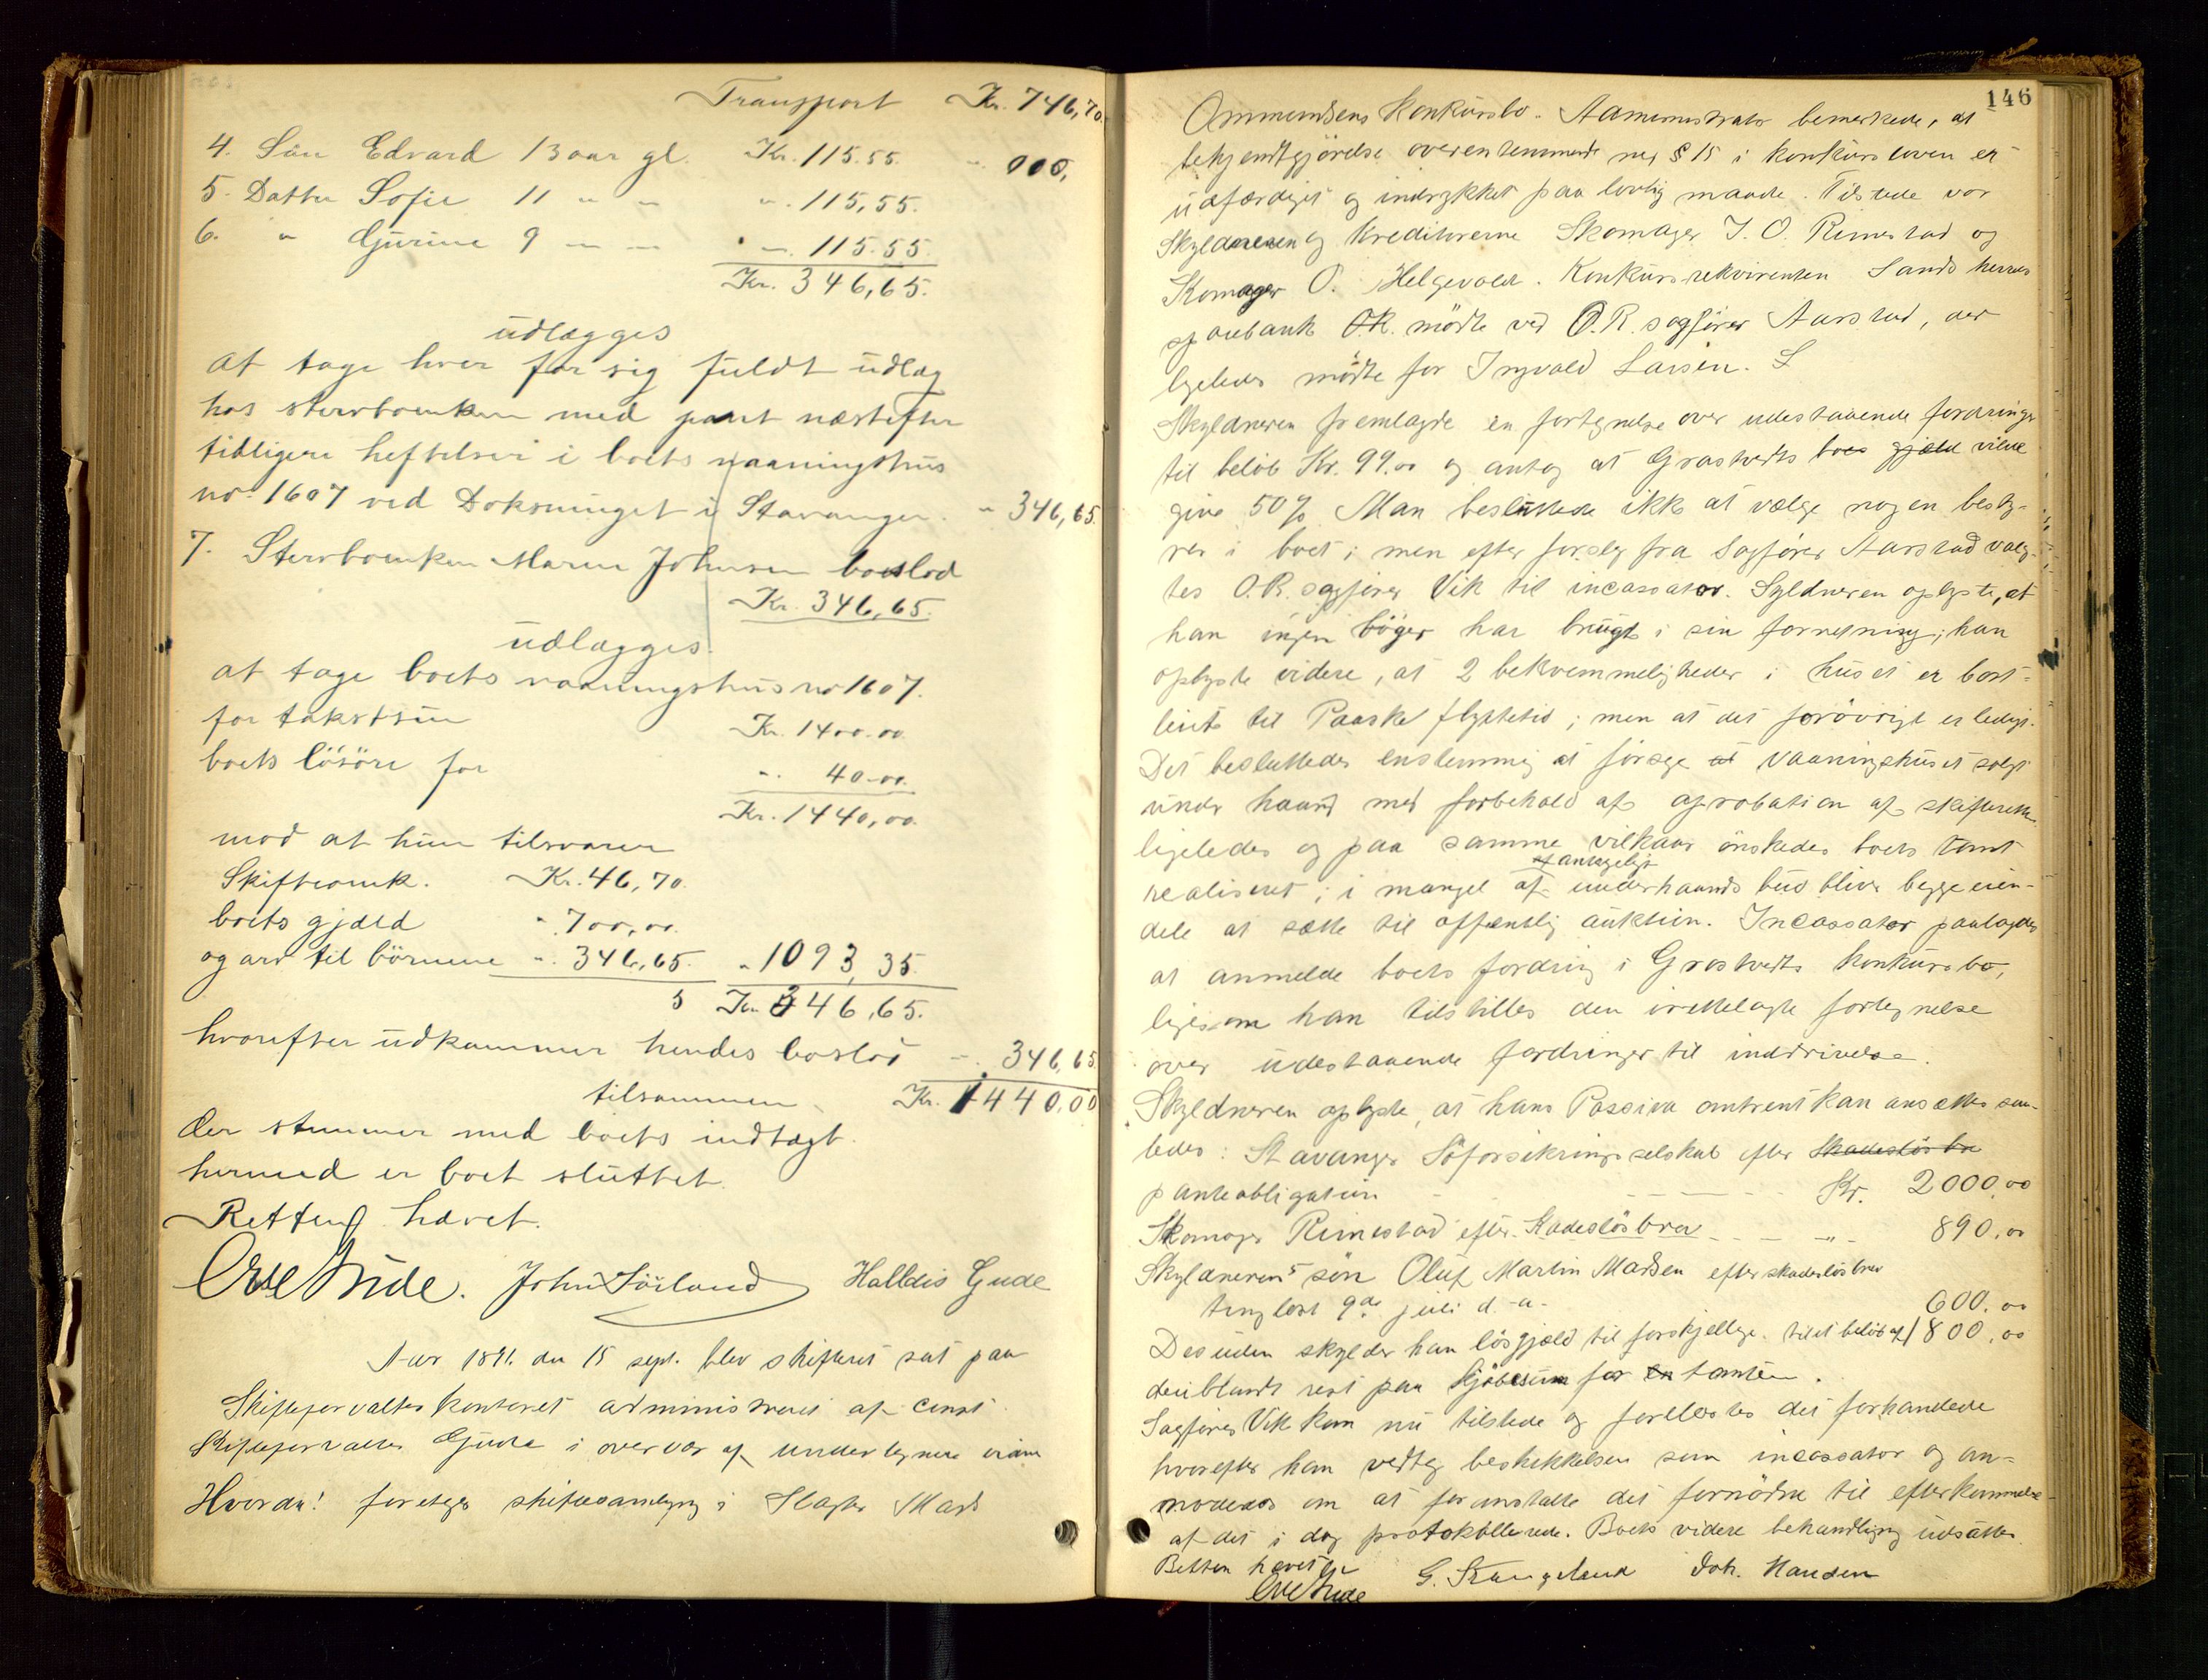 Transport Kr. 746,70
4. Sön Edvard 13 aar gl. Kr. 115.55. " 000,
5. Datter Sofie 11 " " ". 115,55.
6. " Gurine 9 — — —. 115.55.
Kr. 346,65.
udlægges
at tage hver for sig fuldt udlæg
hos sterboenken med pant næstefter
tidligere heftelser i boets vaaningshus
no. 1607 ved Doksninget i Stavanger. " 346,65.
7. Sterboenken Maren Johnsen boeslod
Kr. 346,65.
udlægges
at tage boets vaaningshus no 1607.
for takstsum Kr. 1400.00
boets lösöre for ". 40.00.
Kr. 1440,00.
mod at hun tilsvarer
Skifteomk. Kr. 46,70.
boets gjæld ". 700,00.
og arv til börnene ". 346,65. " 1093,35.
5 Kr. 346,65.
hvorefter udkommer hendes boslod —. 346,65.
tilsammen Kr. 1440,00
der stemmer med boets indtægt.
hermed er boet sluttet.
Retten hævet.
Ove Gude. John Söiland Halldis Gude
Aar 1891. den 15 sept. blev skifteret sat paa
Skifteforvalterkontoret administreret af const.
Skifteforvalter Gude i overvær af undertegnede vidner
Hvorda! foretages skiftesamling i Slagter Mads
146
Ommundsens Konkursbo. Administrator bemerkede, at
bekjendtgjörelse overensstemmende med § 15 i konkursloven er
udfærdiget og indrykket paa lovlig maade. Tilstede var
Skyldneren og Kreditorerne Skomager J. O. Rimestad og
Skomager O. Helgevold. Konkursrekvirenten Sands herreds
sparebank O.R. mödte ved O.R. sagförer Aarstad, der
ligeledes mödte for Ingvald Larsen. S
Skyldneren fremlagde en fortegnelse over udestaaende fordringer
til belöb Kr. 99.00 og antog at Grastveits boes gjæld vilde
give 50% Man besluttede ikke at vælge nogen besty-
rer i boet; men efter forslag fra Sagförer Aarstad valg-
tes O.R. sagförer Vik til incassator. Syldneren oplyste, at
han ingen böger har brugt i sin forretning; han
oplyste videre, at 2 bekvemmeligheder i huset er bort-
leiet til Paaske flyttetid; men at det forövrigt er ledigt.
Det besluttedes enstemmig at forsøge at vaaningshuset solgt
under haand med forbehold af aprobation af skifteretten
ligeledes og paa samme vilkaar önskedes boets tomt
antageligt
realiseret; i mangel af underhaands bud bliver begge eien-
dele at sætte til offentlig auktion. Incassator paalagdes
at anmelde boets fordring i Grastveits konkursbo,
ligesom han tilstilles den irettelagte fortegnelse
over udestaaende fordringer til inddrivelse.
Skyldneren oplyste, at hans Passiva omtrent kan ansættes saa-
ledes: Stavanger Söforsikringsselskab efter Skadeslösbre
panteobligation Kr. 2000,00
Skomager Rimestad efter Skadeslösbrev - - - " - 890.00
Skyldnerens sön Oluf Martin Madsen efter skadeslösbrev
tinglæst 9de juli d. a. 600.00
Desuden skylder han lösgjæld til forskjellige. til et belöb af 1800.00
deriblandt rest paa Kjöbesum for en tomten.
Sagförer Vik kom nu tilstede og forelæstes det forhandlede
hvorefter han vedtog beskikkelsen som incassator og an-
modedes om at foranstalte det fornödne til efterkommelse
af det i dag protokollerede. Boets videre behandling udsættes
Retten hævet
Ove Gude G. Stangeland Joh. Hansen